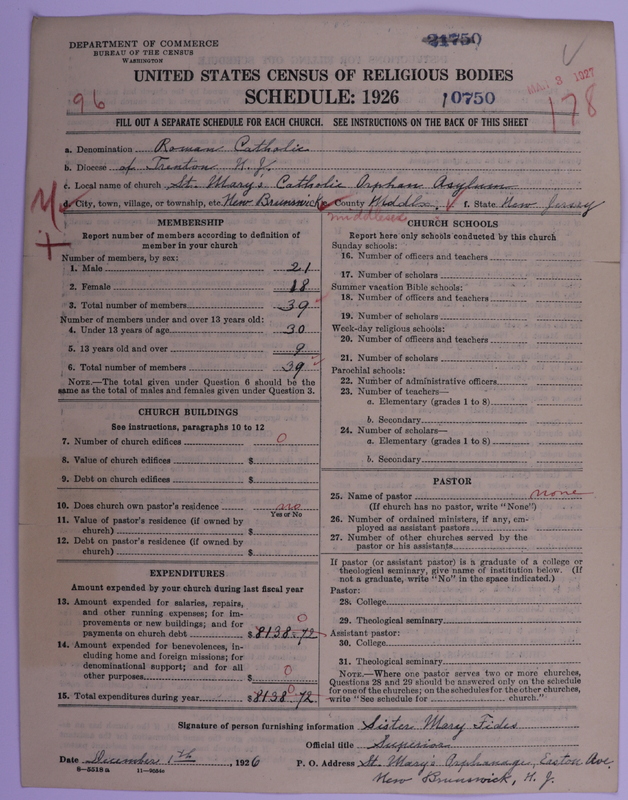 DEPARTMENT OF COMMERCE
BUREAU OF THE CENSUS
WASHINGTON
21750
UNITED STATES CENSUS OF RELIGIOUS BODIES
MAR 3 1927
SCHEDULE: 1926
96
10750
178
FILL OUT A SEPARATE SCHEDULE FOR EACH CHURCH. SEE INSTRUCTIONS ON THE BACK OF THIS SHEET
a. Denomination Roman Catholic
b. Diocese of Trenton N. J.
c. Local name of church St. Mary's Catholic Orphan Asylum
d. City, town, village, or township, etc. New Brunswick e. County Middlx. f. State New Jersey
middlesex
MEMBERSHIP
Report number of members according to definition of
member in your church
Number of members, by sex:
1. Male 21
2. Female 18
3. Total number of members 39
Number of members under and over 13 years old:
4. Under 13 years of age 30
5. 13 years old and over 9
6. Total number of members 39
NOTE.—The total given under Question 6 should be the
same as the total of males and females given under Question 3.
CHURCH BUILDINGS
See instructions, paragraphs 10 to 12
7. Number of church edifices 0
8. Value of church edifices $
9. Debt on church edifices $
10. Does church own pastor's residence no
Yes or No
11. Value of pastor's residence (if owned by
church) $
12. Debt on pastor's residence (if owned by
church) $
EXPENDITURES
Amount expended by your church during last fiscal year
13. Amount expended for salaries, repairs,
and other running expenses; for im-
provements or new buildings; and for
payments on church debt $ 8138.72 0
14. Amount expended for benevolences, in-
cluding home and foreign missions; for
denominational support; and for all
other purposes $ 0
15. Total expenditures during year $ 8138.72 0
CHURCH SCHOOLS
Report here only schools conducted by this church
Sunday schools:
16. Number of officers and teachers
17. Number of scholars
Summer vacation Bible schools:
18. Number of officers and teachers
19. Number of scholars
Week-day religious schools:
20. Number of officers and teachers
21. Number of scholars
Parochial schools:
22. Number of administrative officers
23. Number of teachers—
a. Elementary (grades 1 to 8)
b. Secondary
24. Number of scholars—
a. Elementary (grades 1 to 8)
b. Secondary
PASTOR
25. Name of pastor none
(If church has no pastor, write "None")
26. Number of ordained ministers, if any, em-
ployed as assistant pastors
27. Number of other churches served by the
pastor or his assistants
If pastor (or assistant pastor) is a graduate of a college or
theological seminary, give name of institution below. (If
not a graduate, write "No" in the space indicated.)
Pastor:
28. College
29. Theological seminary
Assistant pastor:
30. College
31. Theological seminary
NOTE.—Where one pastor serves two or more churches,
Questions 28 and 29 should be answered only on the schedule
for one of the churches; on the schedules for the other churches,
write "See schedule for church."
Signature of person furnishing information Sister Mary Fides
Official title Superior
Date December 1th, 1926 P. O. Address St. Mary's Orphanage, Easton Ave.
8—5518a 11—9084a New Brunswick, N. J.